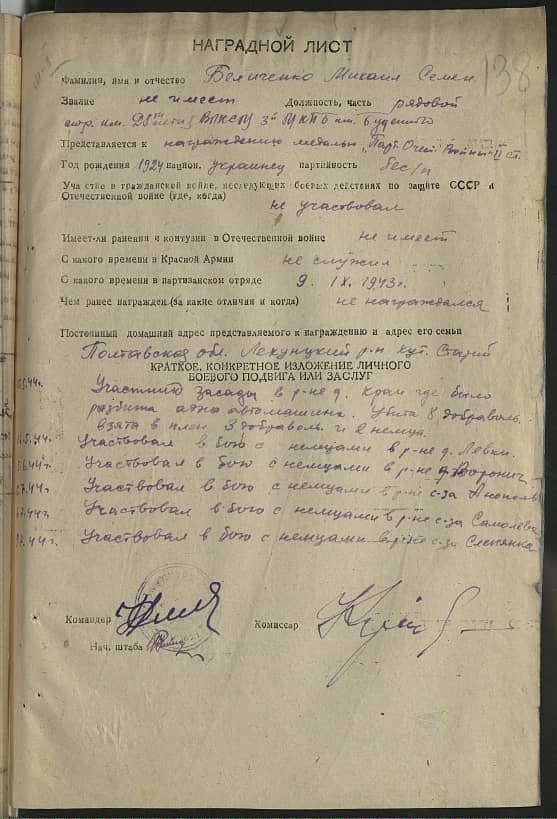 138
НАГРАДНОЙ ЛИСТ
Фамилия, имя и отчество Беличенко Михаил Семен.
Звание не имеет Должность, часть рядовой
отр. им. ВЛКСМ 3й МКПБ им. Буденного
Представляется к награждению медалью „Парт. Отеч. Войны" II ст.
Год рождения 1924 национ. украинец партийность бес/п
Участие в гражданской войне, последующих боевых действиях по защите СССР и
Отечественной войне (где, когда)
не участвовал
Имеет-ли ранения и контузии в Отечественной войне не имеет
С какого времени в Красной Армии не служил
С какого времени в партизанском отряде 9. IX. 1943 г.
Чем ранее награжден (за какие отличия и когда) не награждался
Постоянный домашний адрес представляемого к награждению и адрес его семьи
Полтавская обл. р-н хут. Старий
КРАТКОЕ, КОНКРЕТНОЕ ИЗЛОЖЕНИЕ ЛИЧНОГО
БОЕВОГО ПОДВИГА ИЛИ ЗАСЛУГ
44г. Участник засады в р-не д. Крам где было
разбита адна автомашина. Убита 8 добраволь.
взята в плен 3 добраволь. и 2 немца.
44г. Участвовал в бою с немцами в р-не д. Левки.
44г. Участвовал в бою с немцами в р-не д. Воронич
44г. Участвовал в бою с немцами в р-не с-за Анополь
44г. Участвовал в бою с немцами в р-не с-за Самолевка
44г. Участвовал в бою с немцами в р-не с-за Слепянка
Командир Комиссар
Нач. штаба